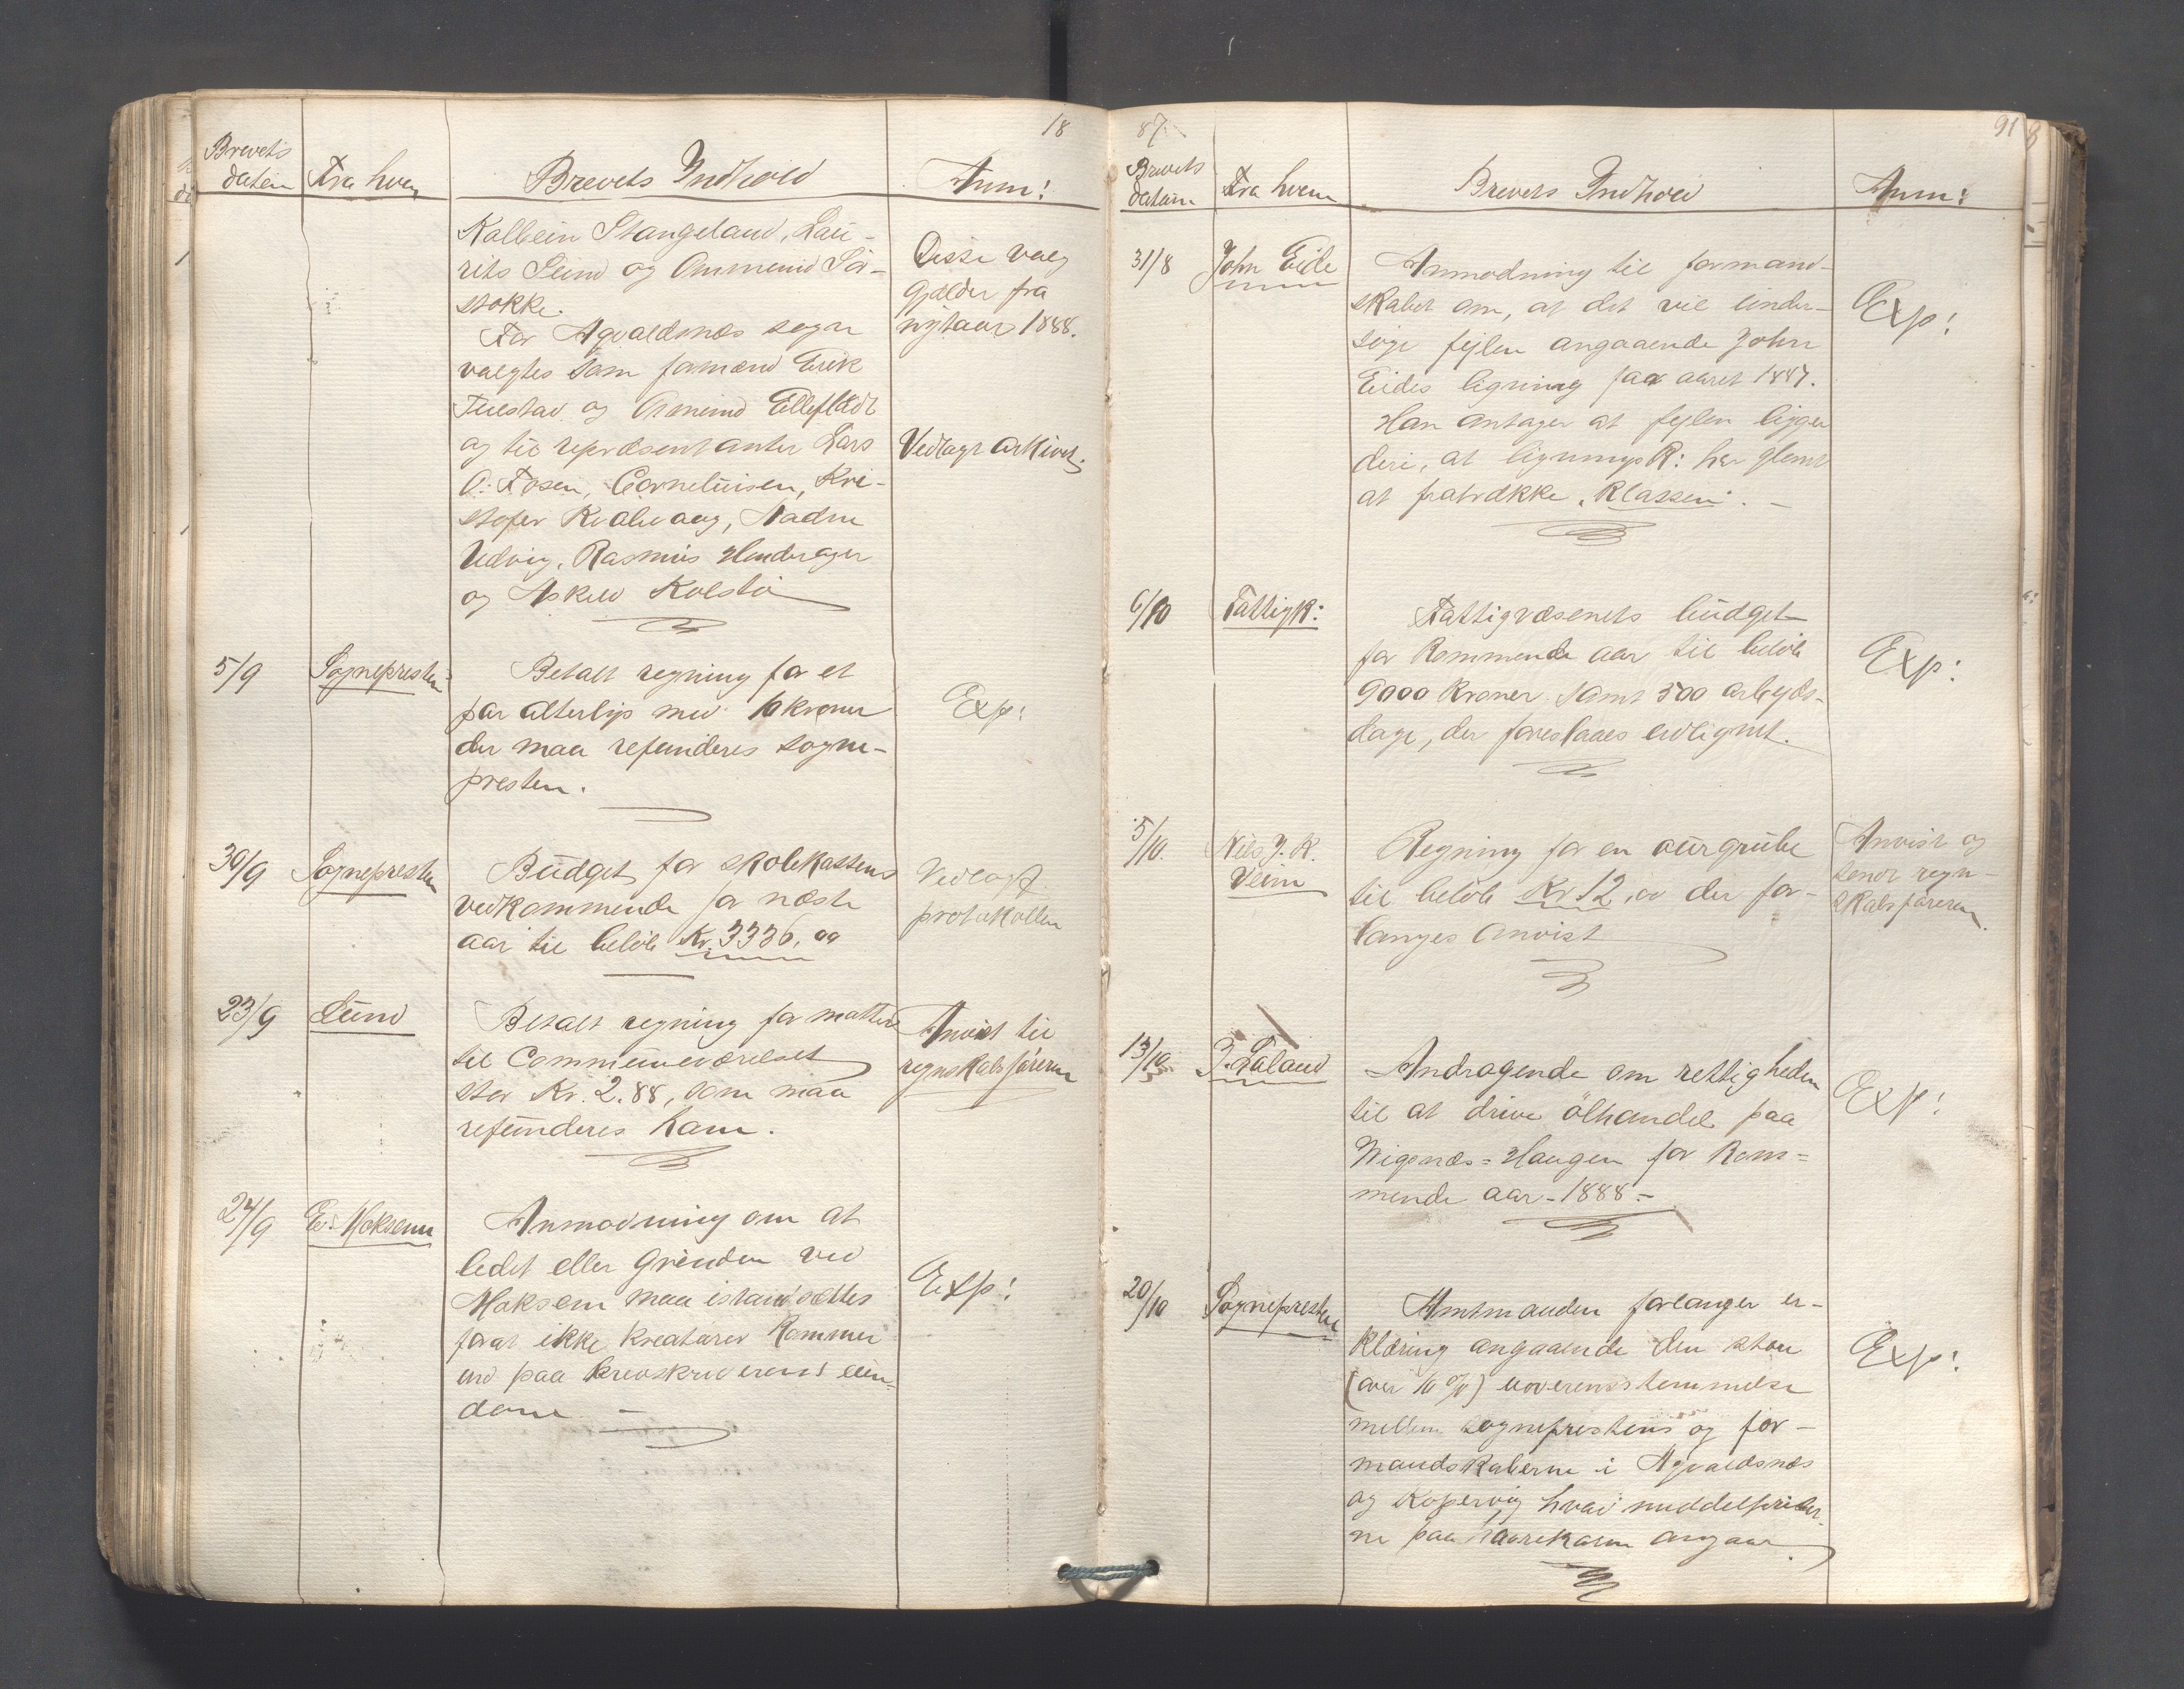 18
Brevets
datum
Fra hvem
Brevets Indhold
Anm:
Kolbein Stangeland, Lau-
rits Lund og Ommund Sör-
stokke.
Disse valg
gjælder fra
nytaar 1888.
For Agvaldsnæs sogn
valgtes som formænd Erik
Tuestad og Osmund Elleflådt
og til repræsentanter Lars
O. Fosen, Corneliusen, Kri-
stofer Kvalevaag,
Vedlagt arkivet.
Udvig, Rasmus Hinderager
og Askild Kolstö
5/9
Sognepresten
Betalt regning for et
par alterlys med 10 kroner
der maa refunderes sogne-
presten.
Exp:
30/9
Sognepresten
Budget for skolekassens
vedkommende for næste
aar til belöb Kr. 3336, 00
Vedlagt
protokollen
23/9
Lund
Betalt regning for matter
til Communeværelset
stor Kr. 2.88, som maa
refunderes ham.
Anvist til
regnskabsföreren
27/9
E. Moksem
Anmodning om at
ledet eller Grinden ved
Moksem maa istandsættes
forat ikke kreaturer kommer
ind paa brevskriverens eien-
dom. -
Exp:
87
91
Brevets
datum
Fra hvem
Brevets Indhold
Anm:
31/8
John Eide
Anmodning til formand-
skabet om, at det vil under-
söge fejlen angaaende John
Eides ligning for aaret 1887.
Han antager at fejlen ligger
deri, at ligningsk: har glemt
at fratrække "Klassen". -
Exp:
6/10
Fattigk:
Fattigvæsenets budget
for kommende aar til belöb
9000 Kroner samt 500 arbejds-
dage, der foreslaaes udlignet.
Exp:
5/10.
Nils J. K.
Veim
Regning for en aurgrube
til belöb Kr 12,00 der for-
langes anvist
Anvist og
sendt regn-
skabsföreren
13/10
J. Laland
Andragende om rettigheden
til at drive ölhandel paa
Wigsnæs=Haugen for kom=
mende aar - 1888 -
Exp:
20/10
Sognepresten
Amtmanden forlanger er-
klæring angaaende den store
(over 10 %) uoverensstemmelse
mellem sogneprestens og for-
mandskaberne i Agvaldsnæs
og Kopervig hvad middelpriser-
ne paa havrekorn angaar.
Exp: